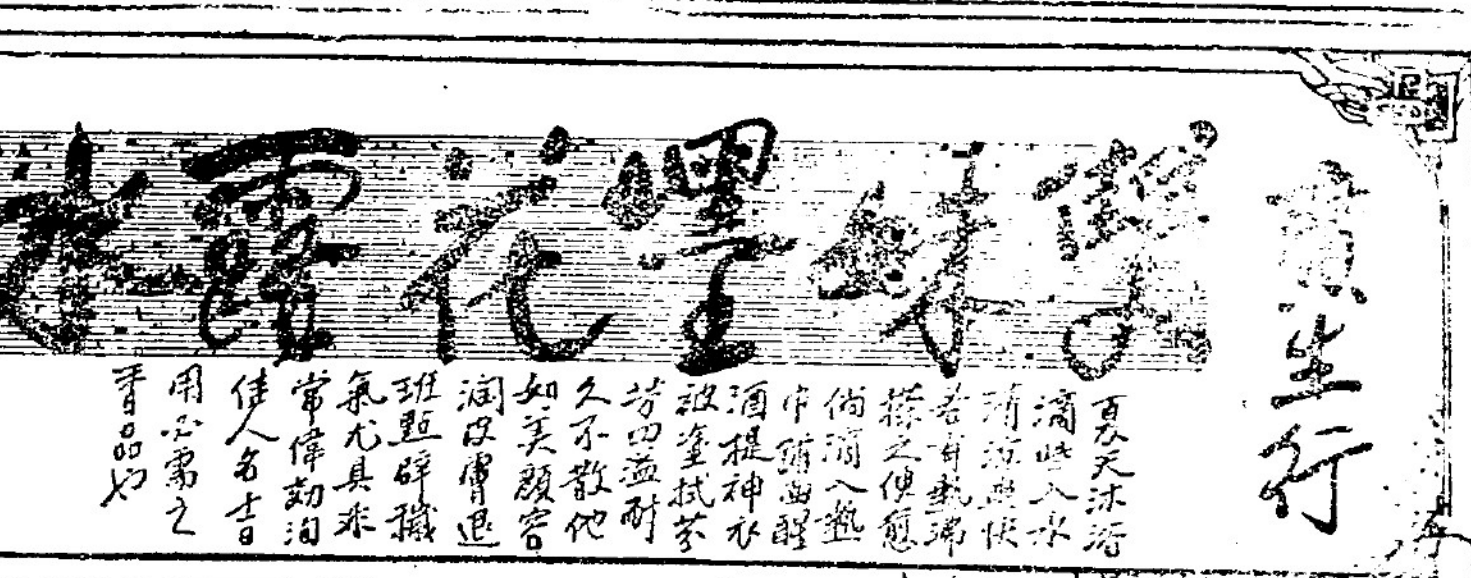 廣生行
雙妹嚜花露水
夏天沐浴
滴些入水
清涼爽快
若有熱痱
搽之便愈
倘滴入熱
巾面醒
酒提神衣
被塗拭芬
芳四溢耐
久不散他
如美顏容
潤皮膚退
班點辟穢
氣尤具非
常偉効洵
佳人名士日
用必需之
香品也